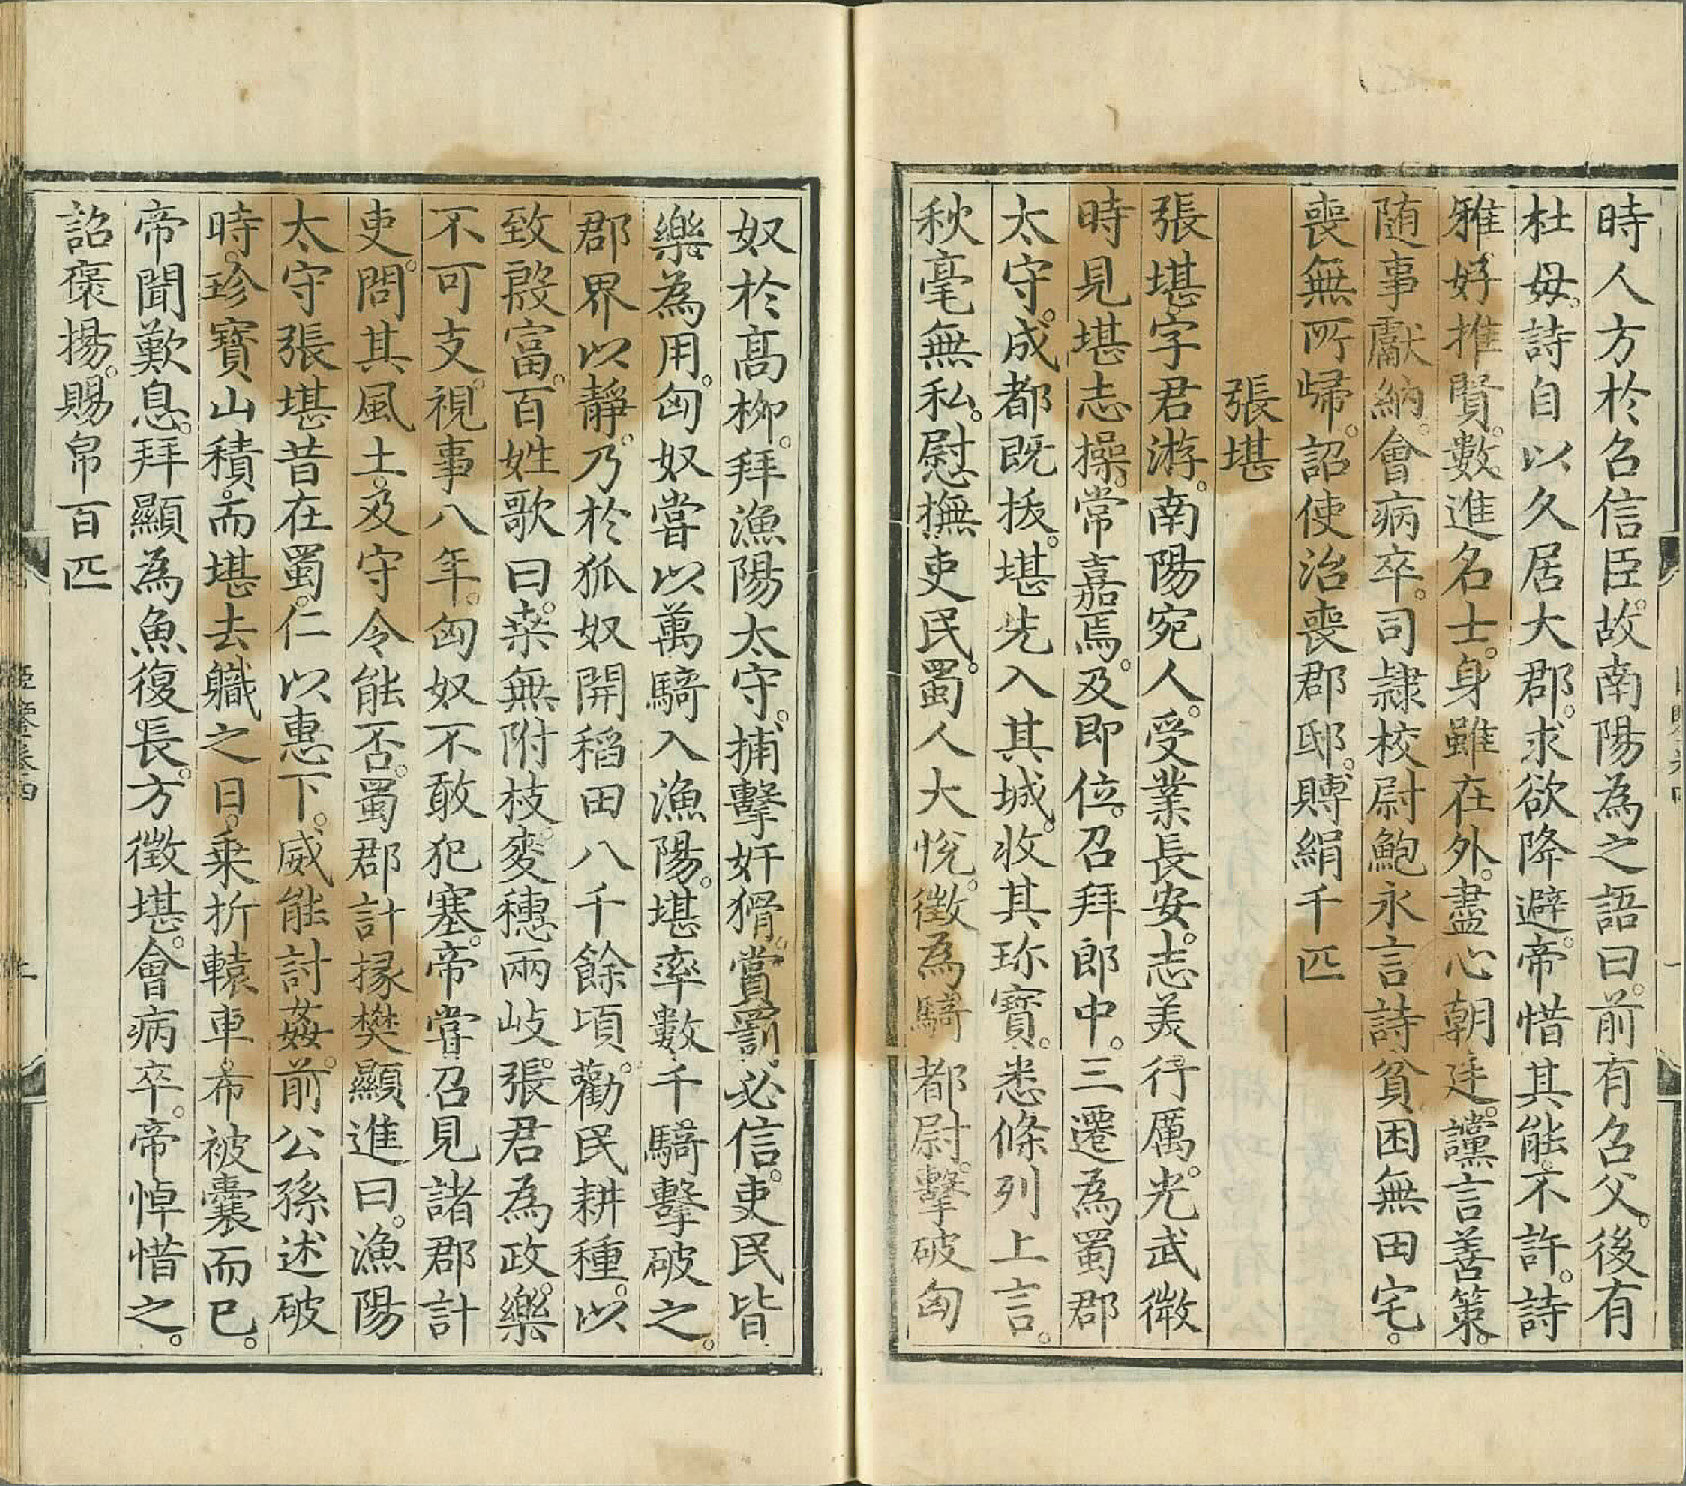 時人方於召信臣。故南陽為之語曰。前有召父。後有
杜母。詩自以久居大郡。求欲降避。帝惜其能。不許。詩
雅好推賢。數進名士。身雖在外。盡心朝廷。讜言善策。
随事獻納。會病卒。司隷校尉鮑永言詩貧困無田宅。
喪無所歸。詔使治喪郡邸。賻絹千匹
張堪
張堪。字君游。南陽宛人。受業長安。志美行厲。光武微
時見堪志操。常嘉焉。及即位。召拜郎中。三遷為蜀郡
太守。成都既拔。堪先入其城。收其珎寶。悉條列上言。
秋毫無私。慰撫吏民。蜀人大悅。徵為騎都尉。擊破匈
奴於高柳。拜漁陽太守。捕擊奸猾。賞罰必信。吏民皆
樂為用。匈奴嘗以萬騎入漁陽。堪率數千騎擊破之。
郡界以靜。乃於狐奴開稻田八千餘頃。勸民耕種。以
致殷富。百姓歌曰。桒無附枝。麥穗兩岐。張君為政。樂
不可支。視事八年。匈奴不敢犯塞。帝嘗召見諸郡計
吏。問其風土。及守令能否。蜀郡計掾樊顯進曰。漁陽
太守張堪昔在蜀。仁以惠下。威能討姦。前公孫述破
時。珍寶山積。而堪去職之日。乗折轅車。布被囊而已。
帝聞歎息。拜顯為魚復長。方徵堪。會病卒。帝悼惜之。
詔褒揚。賜帛百匹